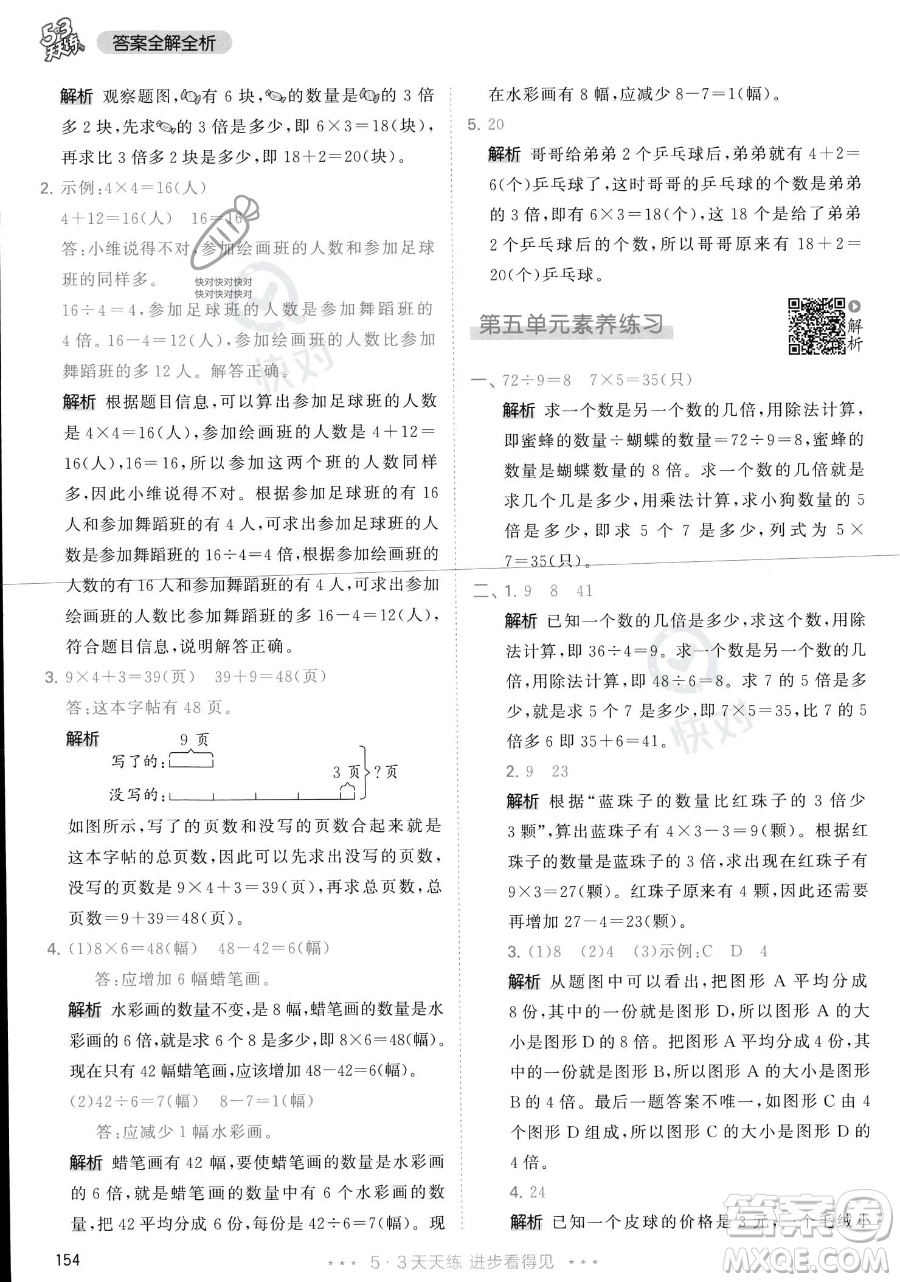 5·3
天天练
答案全解全析
解析 观察题图,有 6 块,的数量是的 3 倍
多 2 块,先求的 3 倍是多少,即 6×3=18(块),
再求比 3 倍多 2 块,即 18+2=20(块)。
2. 示例:4×4=16(人)
4+12=16(人) 16=16
答:小维说得不对,参加绘画班的人数和参加足球
班的同样多。
16÷4=4,参加足球班的人数是参加舞蹈班人数的
4 倍。16-4=12(人),参加绘画班的人数比参加
舞蹈班人数多 12 人。解答正确。
解析 根据题目信息,可以算出参加足球班的人数
是 4×4=16(人),参加绘画班的人数是 4+12=
16(人),16=16,所以参加这两个班的人数同样
多,因此小维说得不对。根据参加足球班的有 16
人和参加舞蹈班的有 4 人,可求出参加足球班的人
数是参加舞蹈班的 16÷4=4 倍。根据参加绘画班的
人数的有 16 人和参加舞蹈班的有 4 人,可求出参加
绘画班的人数比参加舞蹈班人数多 16-4=12(人),
符合题目信息,说明解答正确。
3. 9×4+3=39(页) 39+9=48(页)
答:这本字帖有 48 页。
解析
9 页
写了的:
3 页
?页
没写的:
如图所示,写了的页数和没写的页数合起来就是
这本字帖的总页数,因此可以先求出没写的页数,
没写的页数是 9×4+3=39(页),再求出总页数,总
页数=9+39=48(页)。
4. (1)8×6=48(幅) 48-42=6(幅)
答:应增加 6 幅蜡笔画。
解析 水彩画的数量不变,是 8 幅,蜡笔画是水
彩画的 6 倍,就是求 8 的 6 倍是多少,即 8×6=48(幅)。
现在共有 42 幅蜡笔画,应该增加 48-42=6(幅)。
(2)42÷6=7(幅) 8-7=1(幅)
答:应减少 1 幅水彩画。
解析 蜡笔画有 42 幅,要使蜡笔画的数量是水彩画
的 6 倍,就是将蜡笔画的数量平均分成 6 份,即把
42 平均分成 6 份,每份是 42÷6=7(幅)。现
在水彩画有 8 幅,应减少 8-7=1(幅)。
5. 20
解析 哥哥给弟弟 2 个乒乓球后,弟弟就有 4+2=
6(个)乒乓球了,这时哥哥的乒乓球个数是弟弟
的 3 倍,即有 6×3=18(个)。这 18 个是给了弟弟
2 个乒乓球后的个数,所以哥哥原来有 18+2=
20(个)乒乓球。
第五单元素养练习
解析
一、72÷9=8 7×5=35(只)
解析 求一个数是另一个数的几倍,用除法计算,
即蜜蜂的数量÷蝴蝶的数量=72÷9=8,蜜蜂的
数量是蝴蝶数量的 8 倍。求一个数的几倍就是
求几个几是多少,用乘法计算,求小狗数量的 5
倍是多少,即求 5 个 7 是多少,列式为 5×
7=35(只)。
二、1. 9 8 41
解析 已知一个数的几倍是多少,求这个数,用除
法计算,即 36÷4=9。求一个数是另一个数的几
倍,用除法计算,即 48÷6=8。求比 7 的 5 倍多
6 的数是多少,先求 7 的 5 倍是 7×5=35,再求比 5
倍多 6 即 35+6=41。
2. 9 23
解析 根据“蓝珠子的数量比红珠子的 3 倍少
3 颗”,算出蓝珠子有 4×3-3=9(颗)。根据红
珠子的数量是蓝珠子的 3 倍,可求出红珠子有
9×3=27(颗)。红珠子原来有 4 颗,因此红珠子
应再增加 27-4=23(颗)。
3. (1)8 (2)4 (3)示例:C D 4
解析 从题图中可以看出,把图形 A 平均分成
8 份,其中的一份就是图形 D,所以图形 A 的大
小是图形 D 的 8 倍。把图形 A 平均分成 4 份,其
中的一份就是图形 B,所以图形 A 的大小是图形
B 的 4 倍。最后一题答案不唯一,如图形 C 由 4 个
图形 D 组成,所以图形 C 的大小是图形 D 的
4 倍。
4. 24
解析 已知一个皮球的价格是 3 元,一个毛绒小
154
5·3 天天练 进步看得见
快对快对快对
快对快对快对
快对
快对